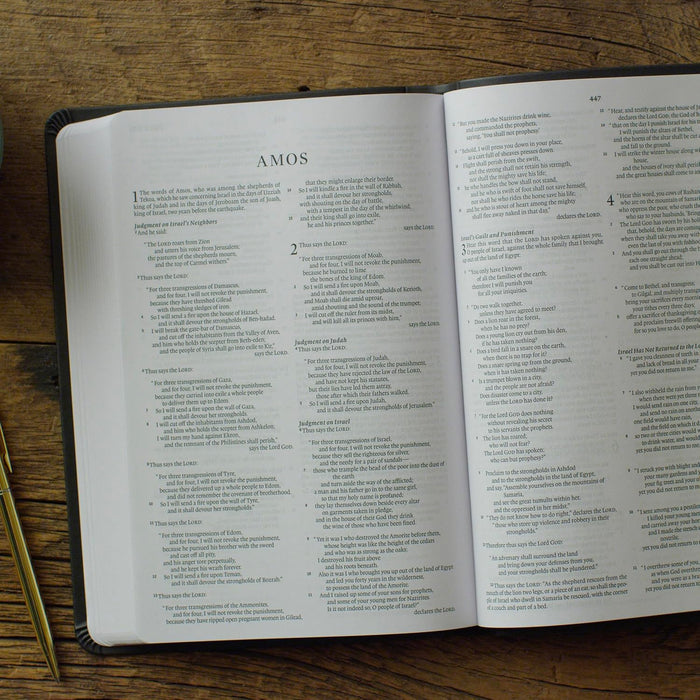 AMOS
1 The words of Amos, who was among the shepherds of
Tekoa, which he saw concerning Israel in the days of Uzziah
king of Judah and in the days of Jeroboam the son of Joash,
king of Israel, two years before the earthquake.
Judgment on Israel's Neighbors
2 And he said:
"The LORD roars from Zion
and utters his voice from Jerusalem;
the pastures of the shepherds mourn,
and the top of Carmel withers."
3 Thus says the LORD:
"For three transgressions of Damascus,
and for four, I will not revoke the punishment,
because they have threshed Gilead
with threshing sledges of iron.
4 So I will send a fire upon the house of Hazael,
and it shall devour the strongholds of Ben-hadad.
5 I will break the gate-bar of Damascus,
and cut off the inhabitants from the Valley of Aven,
and him who holds the scepter from Beth-eden;
and the people of Syria shall go into exile to Kir,"
says the LORD.
6 Thus says the LORD:
"For three transgressions of Gaza,
and for four, I will not revoke the punishment,
because they carried into exile a whole people
to deliver them up to Edom.
7 So I will send a fire upon the wall of Gaza,
and it shall devour her strongholds.
8 I will cut off the inhabitants from Ashdod,
and him who holds the scepter from Ashkelon;
I will turn my hand against Ekron,
and the remnant of the Philistines shall perish,"
says the Lord GOD.
9 Thus says the LORD:
"For three transgressions of Tyre,
and for four, I will not revoke the punishment,
because they delivered up a whole people to Edom,
and did not remember the covenant of brotherhood.
10 So I will send a fire upon the wall of Tyre,
and it shall devour her strongholds."
11 Thus says the LORD:
"For three transgressions of Edom,
and for four, I will not revoke the punishment,
because he pursued his brother with the sword
and cast off all pity,
and his anger tore perpetually,
and he kept his wrath forever.
12 So I will send a fire upon Teman,
and it shall devour the strongholds of Bozrah."
13 Thus says the LORD:
"For three transgressions of the Ammonites,
and for four, I will not revoke the punishment,
because they have ripped open pregnant women in Gilead,
that they might enlarge their border.
14 So I will kindle a fire in the wall of Rabbah,
and it shall devour her strongholds,
with shouting on the day of battle,
with a tempest in the day of the whirlwind;
15 and their king shall go into exile,
he and his princes together,"
says the LORD.
2 Thus says the LORD:
"For three transgressions of Moab,
and for four, I will not revoke the punishment,
because he burned to lime
the bones of the king of Edom.
2 So I will send a fire upon Moab,
and it shall devour the strongholds of Kerioth,
and Moab shall die amid uproar,
amid shouting and the sound of the trumpet;
3 I will cut off the ruler from its midst,
and will kill all its princes with him,"
says the LORD.
Judgment on Judah
4 Thus says the LORD:
"For three transgressions of Judah,
and for four, I will not revoke the punishment,
because they have rejected the law of the LORD,
and have not kept his statutes,
but their lies have led them astray,
those after which their fathers walked.
5 So I will send a fire upon Judah,
and it shall devour the strongholds of Jerusalem."
Judgment on Israel
6 Thus says the LORD:
"For three transgressions of Israel,
and for four, I will not revoke the punishment,
because they sell the righteous for silver,
and the needy for a pair of sandals—
7 those who trample the head of the poor into the dust of
the earth
and turn aside the way of the afflicted;
a man and his father go in to the same girl,
so that my holy name is profaned;
8 they lay themselves down beside every altar
on garments taken in pledge,
and in the house of their God they drink
the wine of those who have been fined.
9 "Yet it was I who destroyed the Amorite before them,
whose height was like the height of the cedars
and who was as strong as the oaks;
I destroyed his fruit above
and his roots beneath.
10 Also it was I who brought you up out of the land of Egypt
and led you forty years in the wilderness,
to possess the land of the Amorite.
11 And I raised up some of your sons for prophets,
and some of your young men for Nazirites.
Is it not indeed so, O people of Israel?"
declares the LORD.
447
12 "But you made the Nazirites drink wine,
and commanded the prophets,
saying, 'You shall not prophesy.'
13 "Behold, I will press you down in your place,
as a cart full of sheaves presses down.
14 Flight shall perish from the swift,
and the strong shall not retain his strength,
nor shall the mighty save his life;
15 he who handles the bow shall not stand,
and he who is swift of foot shall not save himself,
nor shall he who rides the horse save his life;
16 and he who is stout of heart among the mighty
shall flee away naked in that day,"
declares the LORD.
Israel's Guilt and Punishment
3 Hear this word that the LORD has spoken against you,
O people of Israel, against the whole family that I brought
up out of the land of Egypt:
2 "You only have I known
of all the families of the earth;
therefore I will punish you
for all your iniquities.
3 "Do two walk together,
unless they have agreed to meet?
4 Does a lion roar in the forest,
when he has no prey?
Does a young lion cry out from his den,
if he has taken nothing?
5 Does a bird fall in a snare on the earth,
when there is no trap for it?
Does a snare spring up from the ground,
when it has taken nothing?
6 Is a trumpet blown in a city,
and the people are not afraid?
Does disaster come to a city,
unless the LORD has done it?
7 "For the Lord GOD does nothing
without revealing his secret
to his servants the prophets.
8 The lion has roared;
who will not fear?
The Lord GOD has spoken;
who can but prophesy?"
9 Proclaim to the strongholds in Ashdod
and to the strongholds in the land of Egypt,
and say, "Assemble yourselves on the mountains of
Samaria,
and see the great tumults within her,
and the oppressed in her midst."
10 "They do not know how to do right," declares the LORD,
"those who store up violence and robbery in their
strongholds."
11 Therefore thus says the Lord GOD:
"An adversary shall surround the land
and bring down your defenses from you,
and your strongholds shall be plundered."
12 Thus says the LORD: "As the shepherd rescues from the
mouth of the lion two legs, or a piece of an ear, so shall the people
of Israel who dwell in Samaria be rescued, with the corner
of a couch and part of a bed.
13 "Hear, and testify against the house of
declares the Lord GOD, the God of
14 "that on the day I punish Israel for his
I will punish the altars of Bethel,
and the horns of the altar shall be cut
and fall to the ground.
15 I will strike the winter house along
house,
and the houses of ivory shall perish
and the great houses shall come
4 "Hear this word, you cows of
who are on the mountain of
who oppress the poor, who crush
who say to your husbands,
2 The Lord GOD has sworn by his
that, behold, the days are coming
when they shall take you away
even the last of you with
3 And you shall go out through the
each one straight ahead;
and you shall be cast out into
4 "Come to Bethel, and transgress;
to Gilgal, and multiply
bring your sacrifices every
your tithes every three days;
5 offer a sacrifice of thanksgiving
and proclaim freewill offerings
for so you love to do, O
Israel Has Not Returned to the
6 "I gave you cleanness of teeth
and lack of bread in all your
yet you did not return to me,"
7 "I also withheld the rain from
when there were yet three
I would send rain on one city,
and send no rain on
one field would have rain,
and the field on which it
8 so two or three cities would
to drink water, and would
yet you did not return to
9 "I struck you with blight and
your many gardens and
your fig trees and your
yet you did not return to
10 "I sent among you a pestilence
I killed your young men
and carried away your
and I made the stench
nostrils;
yet you did not return to
11 "I overthrew some of you,
as when God overthrew
and you were as a
yet you did not return